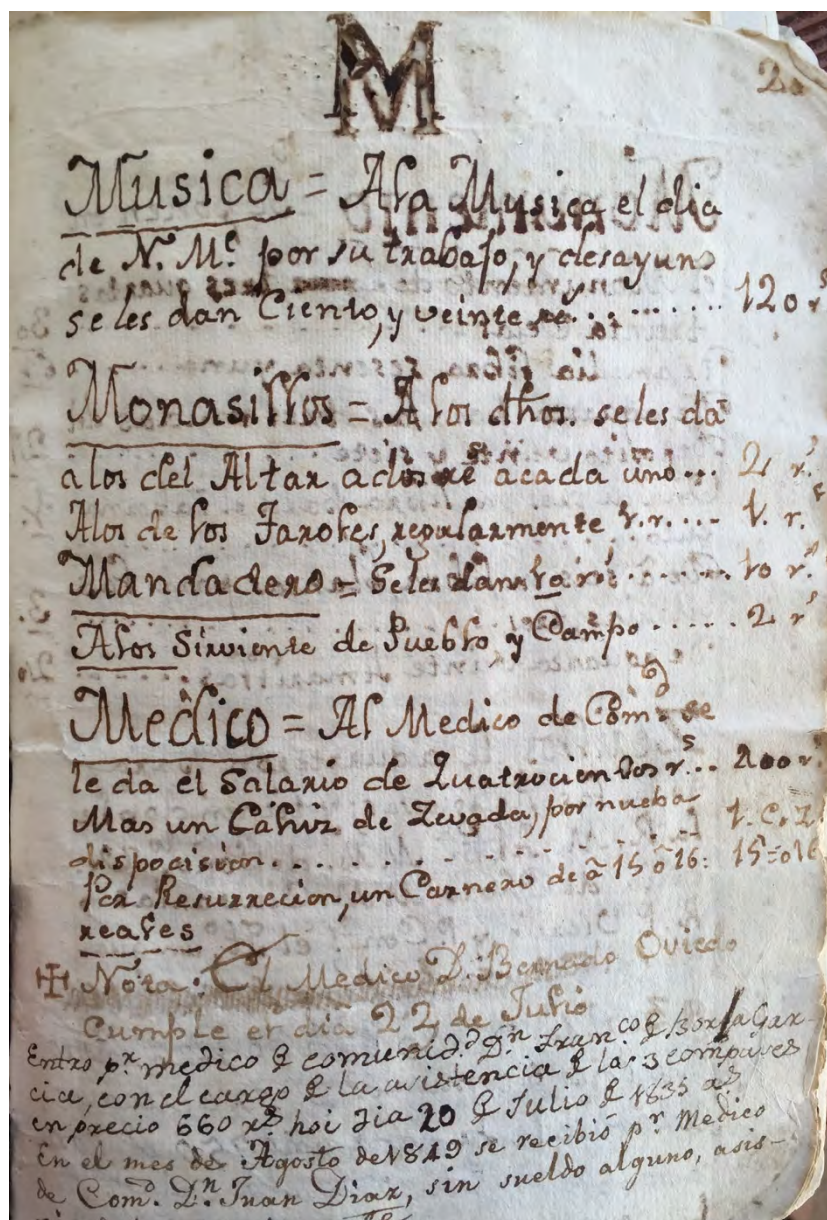 M
Musica = A la Musica el dia
de N. M.ᵉ por su trabajo, y desayuno
se les dan Ciento, y veinte rˢ......... 120 rˢ
Monasillos = A los dhos. se les da
a los del Altar a dos rˢ a cada uno... 2 rˢ
A los de los Faroles, regularmente 1. r.... 1. r.
Mandadero = Se les dan 10 rˢ....... 10 rˢ
A los Sirviente de Pueblo y Campo...... 2 rˢ
Medico = Al Medico de Comᵈ se
le da el Salario de Quatrocientos rˢ.. 400 rˢ
Mas un Cahiz de Zevada, por nueba 1. C. Z
disposision...........
Por Resurrecion, un Carnero de â 15 ô 16: 15 = o 16
reales
Nota: El Medico D. Bernado Oviedo
Cumple el dia 22 de Julio
Entro pʳ medico de comunidᵈ Dⁿ Franᶜᵒ de Borja Gar-
cia, con el cargo de la asistencia de las 3 compases
en precio 660 rˢ hoi dia 20 de Julio de 1835 aˢ
En el mes de Agosto de 1849 se recibió pʳ Medico
de Comᵈ. Dⁿ Juan Diaz, sin sueldo alguno, asis-